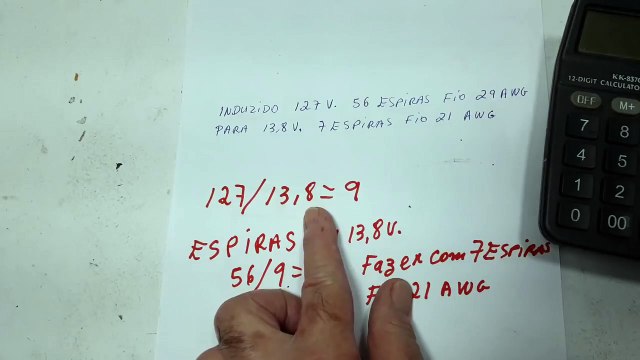 INDUZIDO 127 V. 56 ESPIRAS FIO 29 AWG
PARA 13,8 V. 7 ESPIRAS FIO 21 AWG
127/13,8 = 9
ESPIRAS 13,8 V.
56/9 =
Fazer com 7 ESPIRAS
21 AWG
12-DIGIT CALCULATOR
OFF M+
7 8
4 5
1 2
0 00